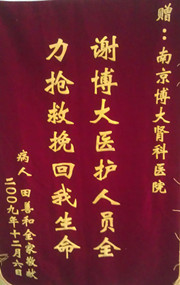 赠：南京博大肾科医院
谢博大医护人员全
力抢救挽回我生命
病人田善和全家敬献
二00九年十二月六日